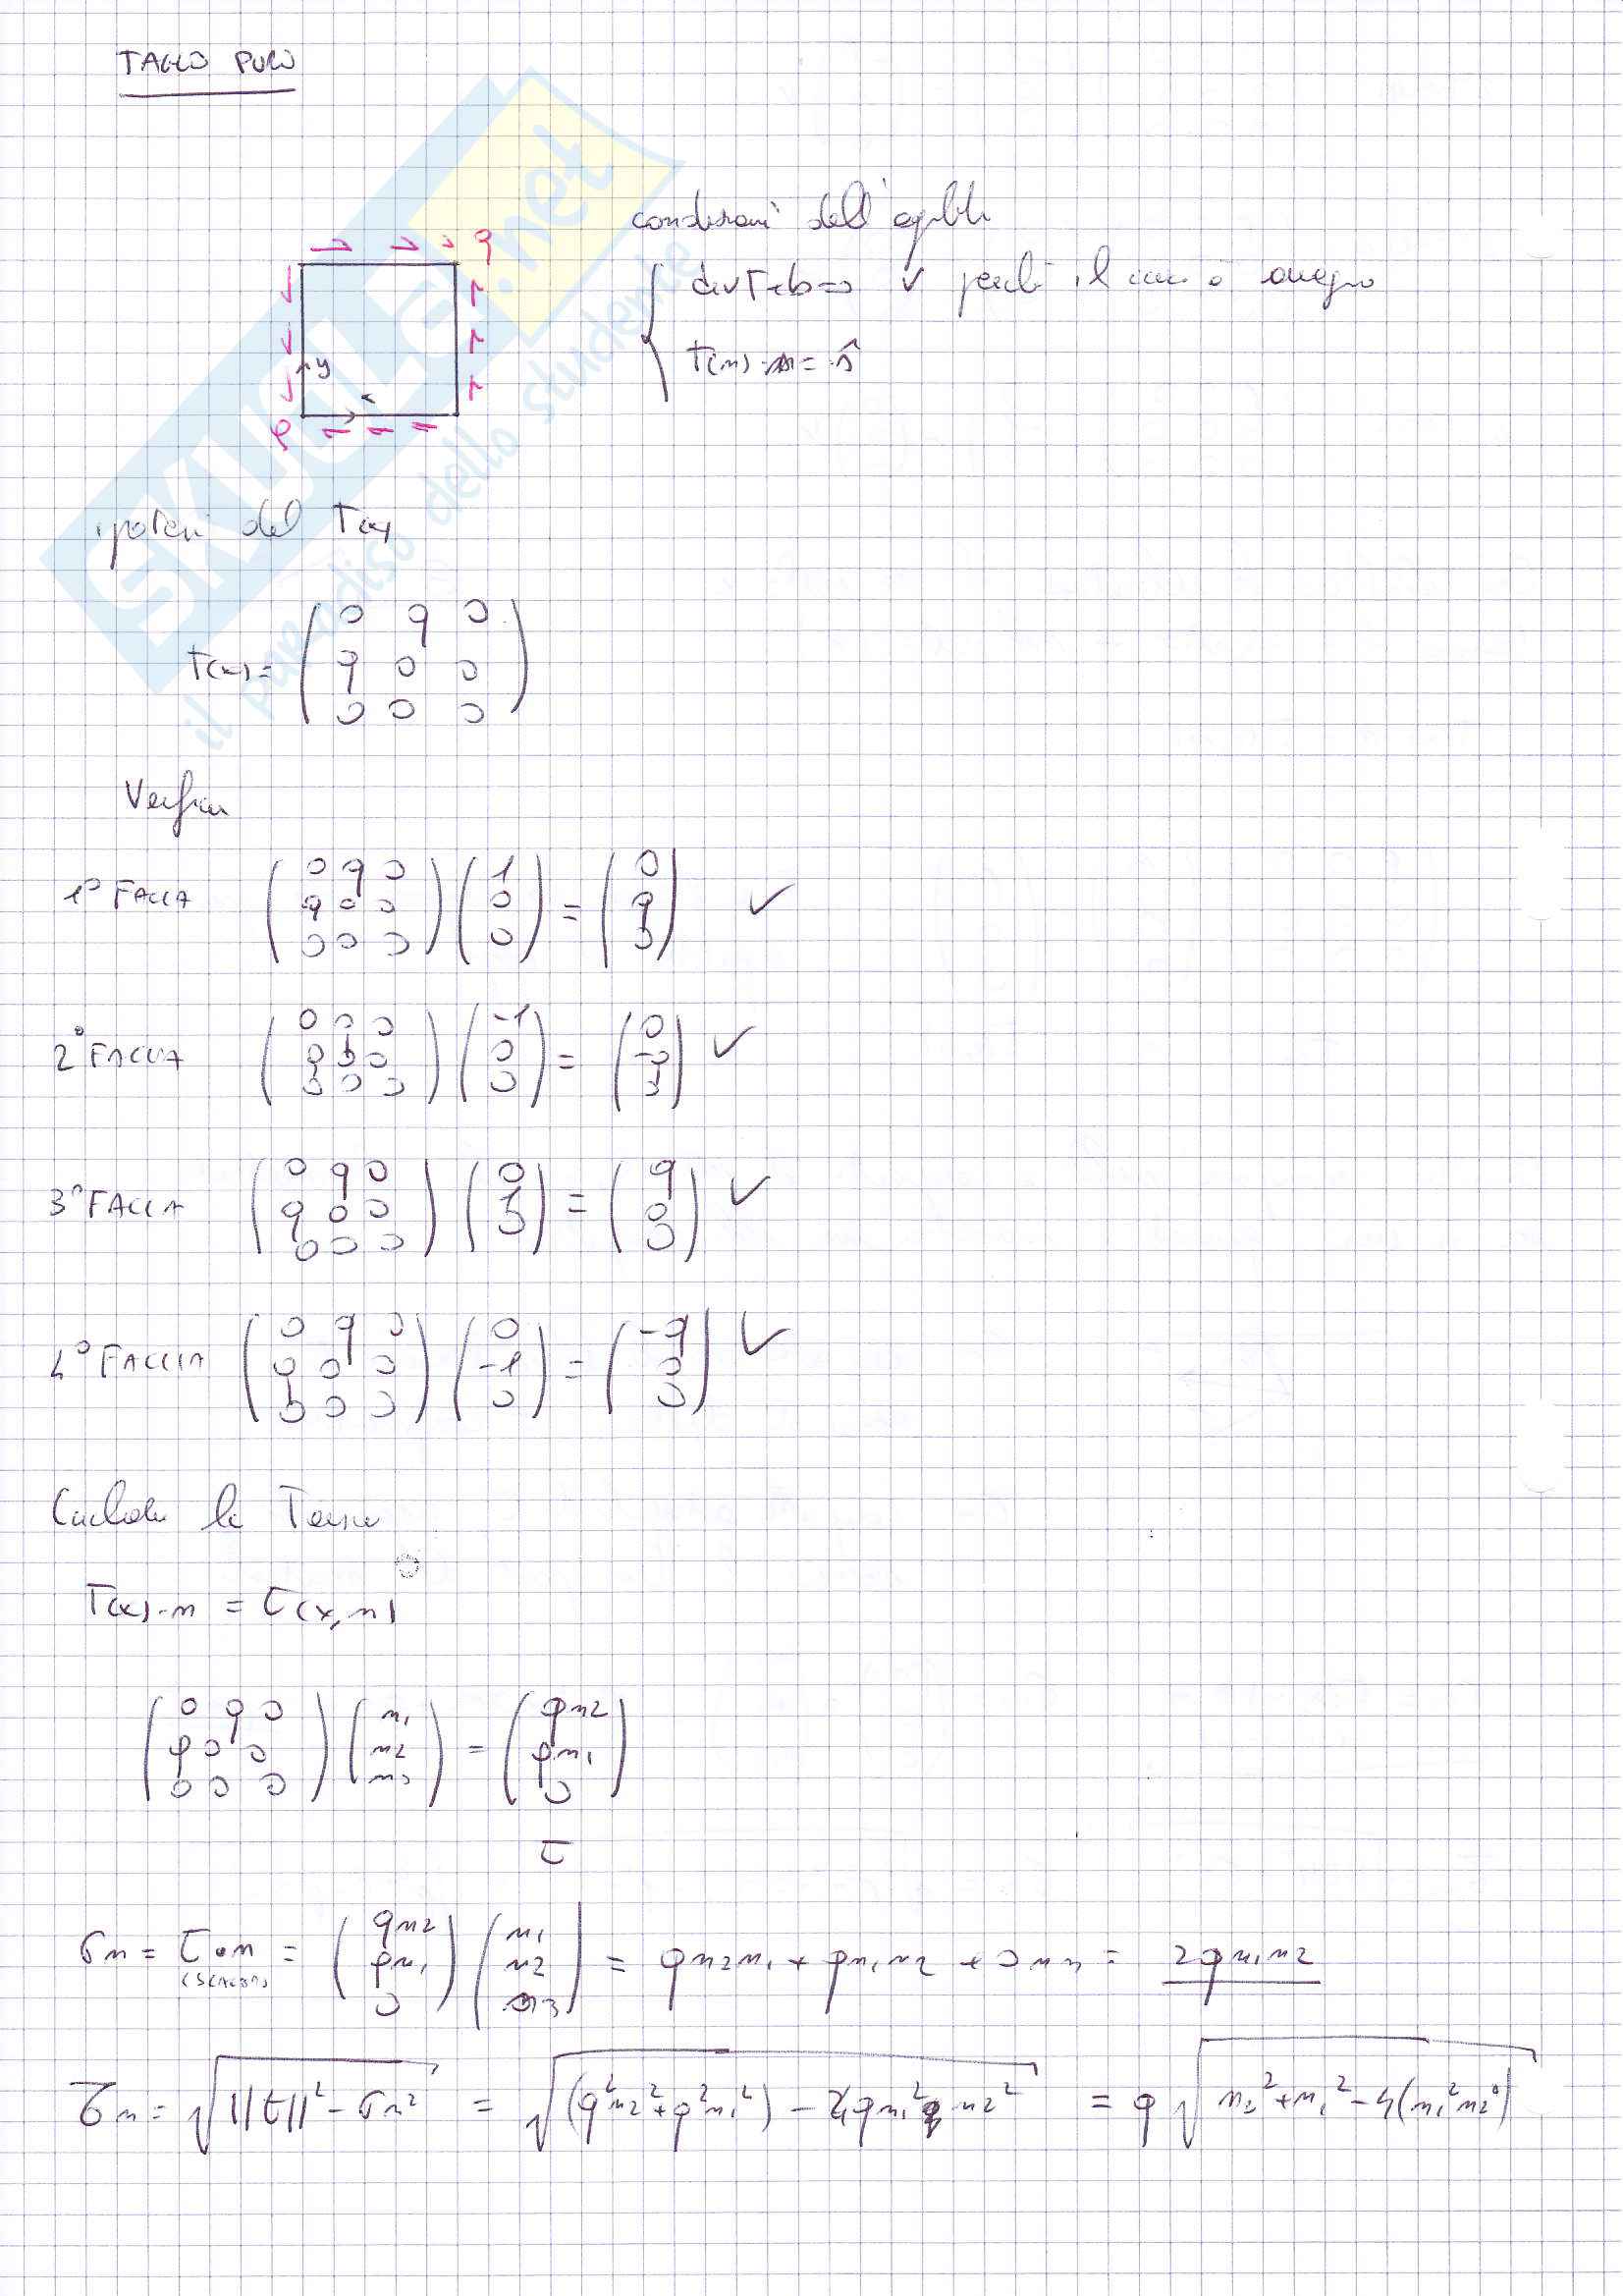 TAGLIO PURO
SKUOLA.net
il paradiso dello studente
condizioni dell'
q
divT+b=0 ✓ perché il è omogeneo
T(n)·n = ŝ
y
x
q
ipotesi del T(x)
T(x) = ( 0 q 0 )
( q 0 0 )
( 0 0 0 )
Verifica
1° FACCIA ( 0 q 0 ; q 0 0 ; 0 0 0 ) ( 1 ; 0 ; 0 ) = ( 0 ; q ; 0 ) ✓
2° FACCIA ( 0 0 0 ; q 0 0 ; 0 0 0 ) ( -1 ; 0 ; 0 ) = ( 0 ; -q ; 0 ) ✓
3° FACCIA ( 0 q 0 ; q 0 0 ; 0 0 0 ) ( 0 ; 1 ; 0 ) = ( q ; 0 ; 0 ) ✓
4° FACCIA ( 0 q 0 ; q 0 0 ; 0 0 0 ) ( 0 ; -1 ; 0 ) = ( -q ; 0 ; 0 ) ✓
T(x)·n = τ(x,n)
( 0 q 0 ; q 0 0 ; 0 0 0 ) ( n1 ; n2 ; n3 ) = ( qn2 ; qn1 ; 0 )
τ
σn = τ•n = ( qn2 ; qn1 ; 0 ) ( n1 ; n2 ; n3 ) = qn2n1 + qn1n2 + 0n3 = 2qn1n2
(SCALARE)
τn = √(||t||² - σn²) = √((q²n2²+q²n1²) - 4qn1²qn2²) = q√(n2²+n1²-4(n1²n2²))